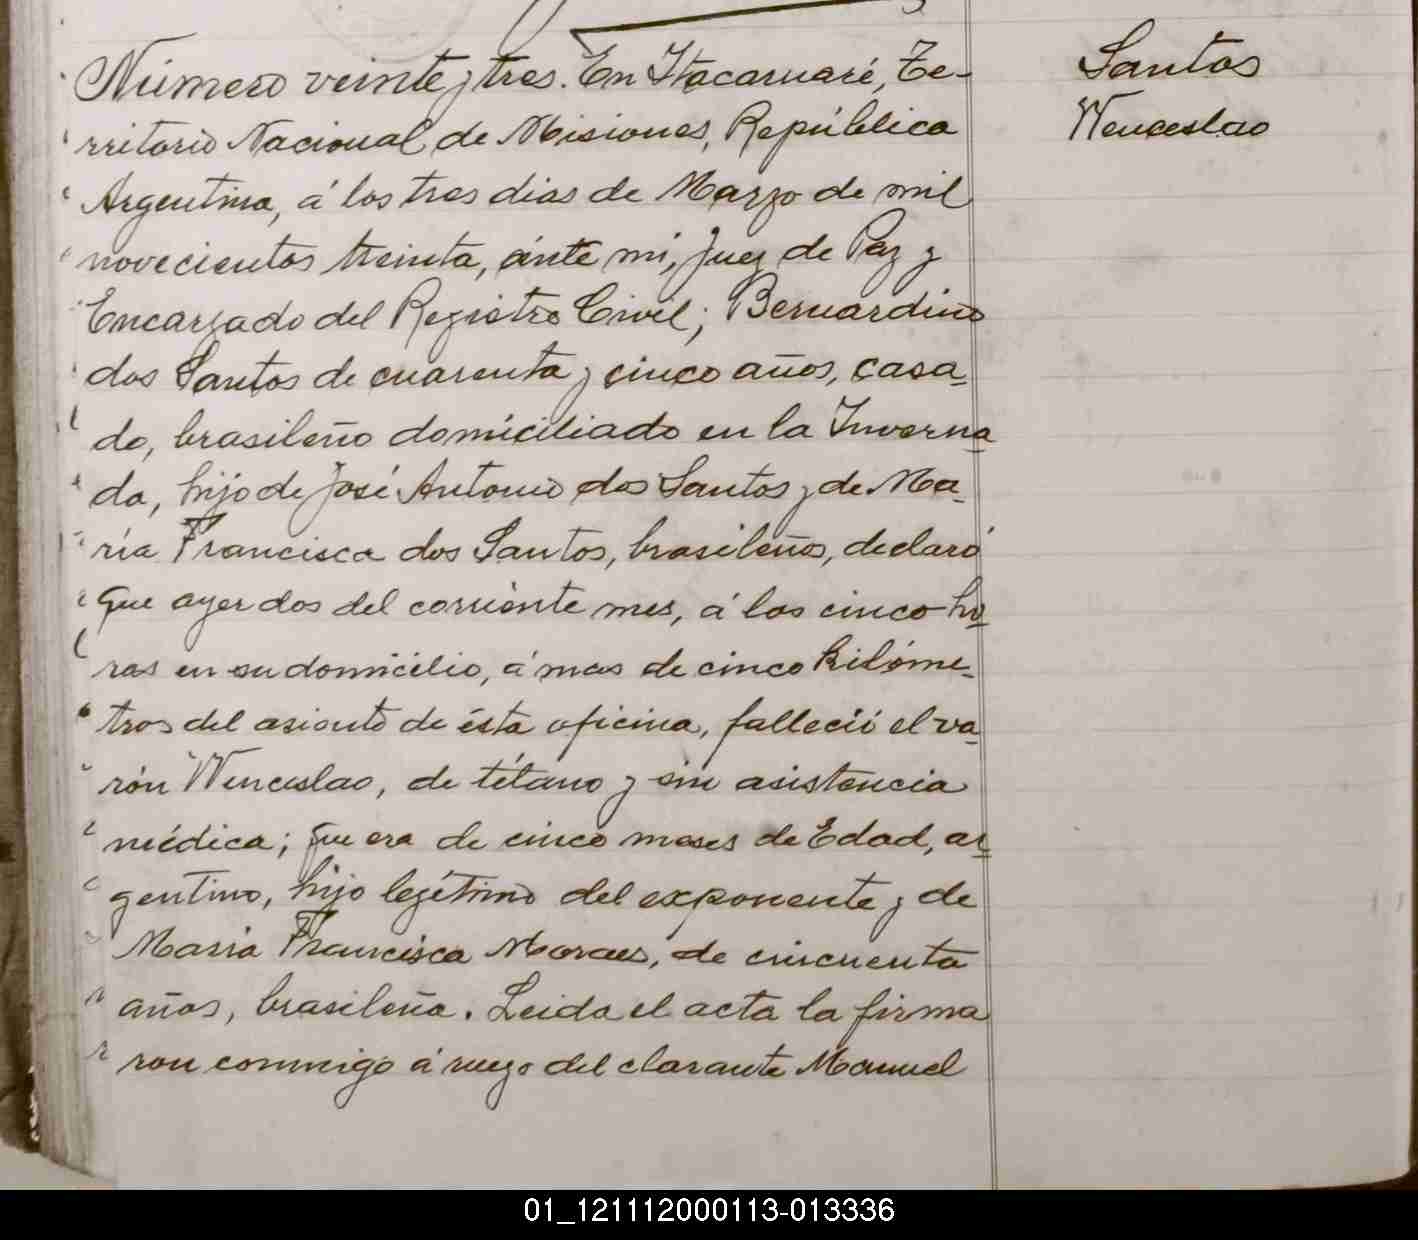 Número veinte y tres. En Itacaruaré, Te-
rritorio Nacional de Misiones, República
Argentina, á los tres dias de Marzo de mil
novecientos treinta, ánte mi, Juez de Paz y
Encargado del Registro Civil; Bernardino
dos Santos de cuarenta y cinco años, casa-
do, brasileño domiciliado en la Inverna-
da, hijo de José Antonio dos Santos y de Ma-
ría Francisca dos Santos, brasileños, declaró
que ayer dos del corriente mes, á las cinco ho-
ras en su domicilio, á mas de cinco kilóme-
tros del asiento de ésta oficina, falleció el va-
rón Wenceslao, de tétano y sin asistencia
médica; que era de cinco meses de Edad, ar-
gentino, hijo legítimo del exponente y de
Maria Francisca Moraes, de cincuenta
años, brasileña. Leida el acta la firma
ron conmigo á ruego del clarante Manuel
Santos
Wenceslao
01_121112000113-013336